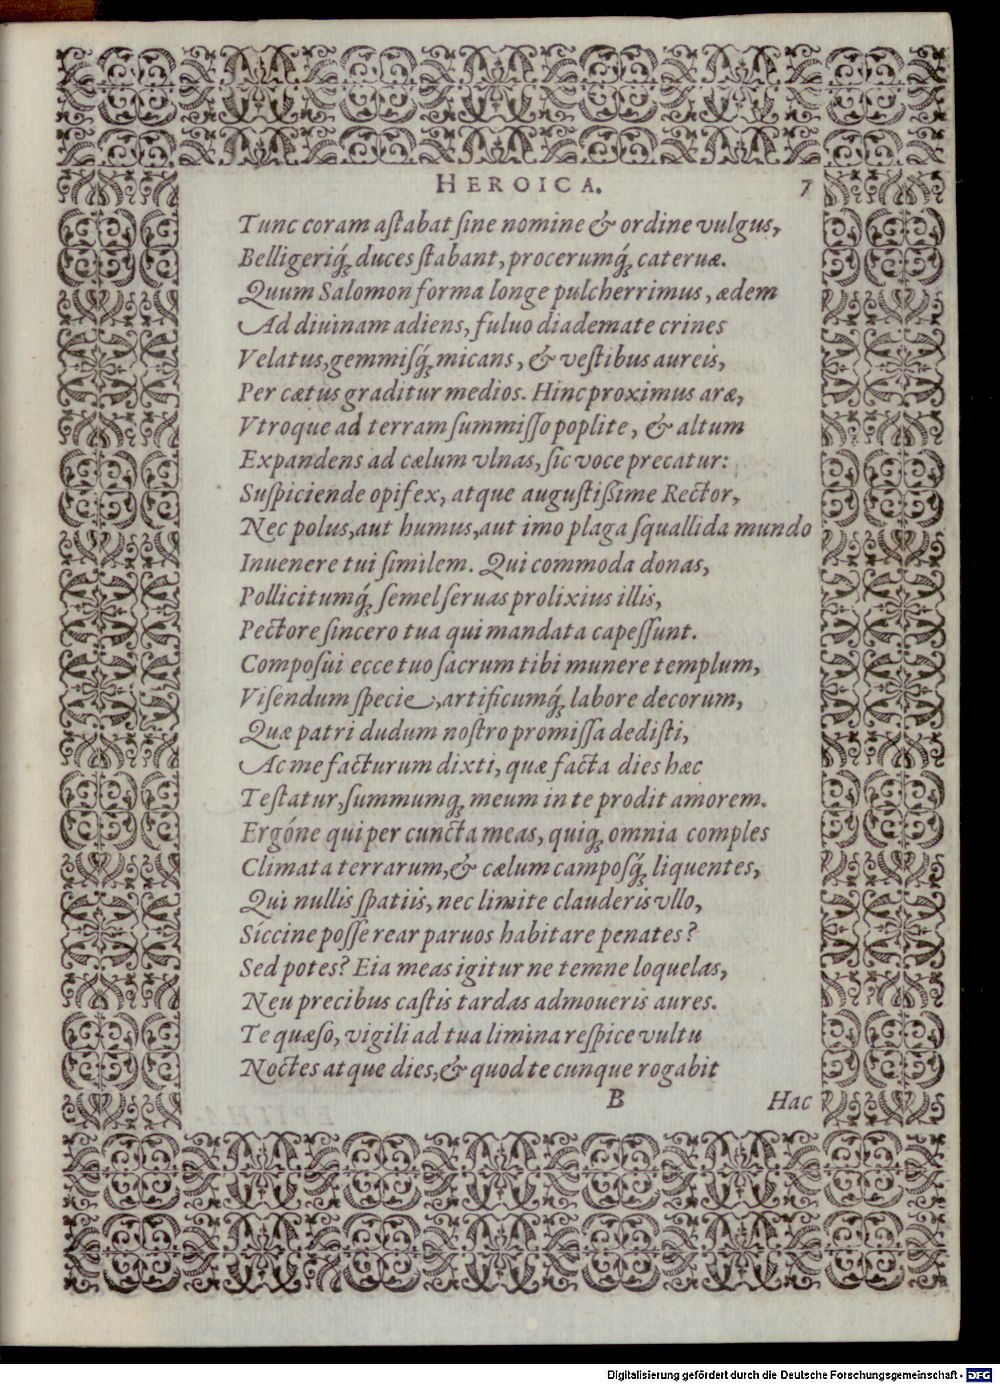 HEROICA. 7
Tunc coram aſtabat ſine nomine & ordine vulgus,
Belligeriq́; duces ſtabant, procerumq́; cateruæ.
Quum Salomon forma longe pulcherrimus, ædem
Ad diuinam adiens, fuluo diademate crines
Velatus, gemmiſq́; micans, & veſtibus aureis,
Per cætus graditur medios. Hinc proximus aræ,
Vtroque ad terram ſummiſſo poplite, & altum
Expandens ad cælum vlnas, ſic voce precatur:
Suſpiciende opifex, atque auguſtiſsime Rector,
Nec polus, aut humus, aut imo plaga ſquallida mundo
Inuenere tui ſimilem. Qui commoda donas,
Pollicitumq́; ſemel ſeruas prolixius illis,
Pectore ſincero tua qui mandata capeſſunt.
Compoſui ecce tuo ſacrum tibi munere templum,
Viſendum ſpecie, artificumq́; labore decorum,
Quæ patri dudum noſtro promiſſa dediſti,
Ac me facturum dixti, quæ facta dies hæc
Teſtatur, ſummumq; meum in te prodit amorem.
Ergóne qui per cuncta meas, quiq; omnia comples
Climata terrarum, & cælum campoſq́; liquentes,
Qui nullis ſpatiis, nec limite clauderis vllo,
Siccine poſſe rear paruos habitare penates?
Sed potes? Eia meas igitur ne temne loquelas,
Neu precibus caſtis tardas admoueris aures.
Te quæſo, vigili ad tua limina reſpice vultu
Noctes atque dies, & quod te cunque rogabit
B Hac
Digitalisierung gefördert durch die Deutsche Forschungsgemeinschaft - DFG